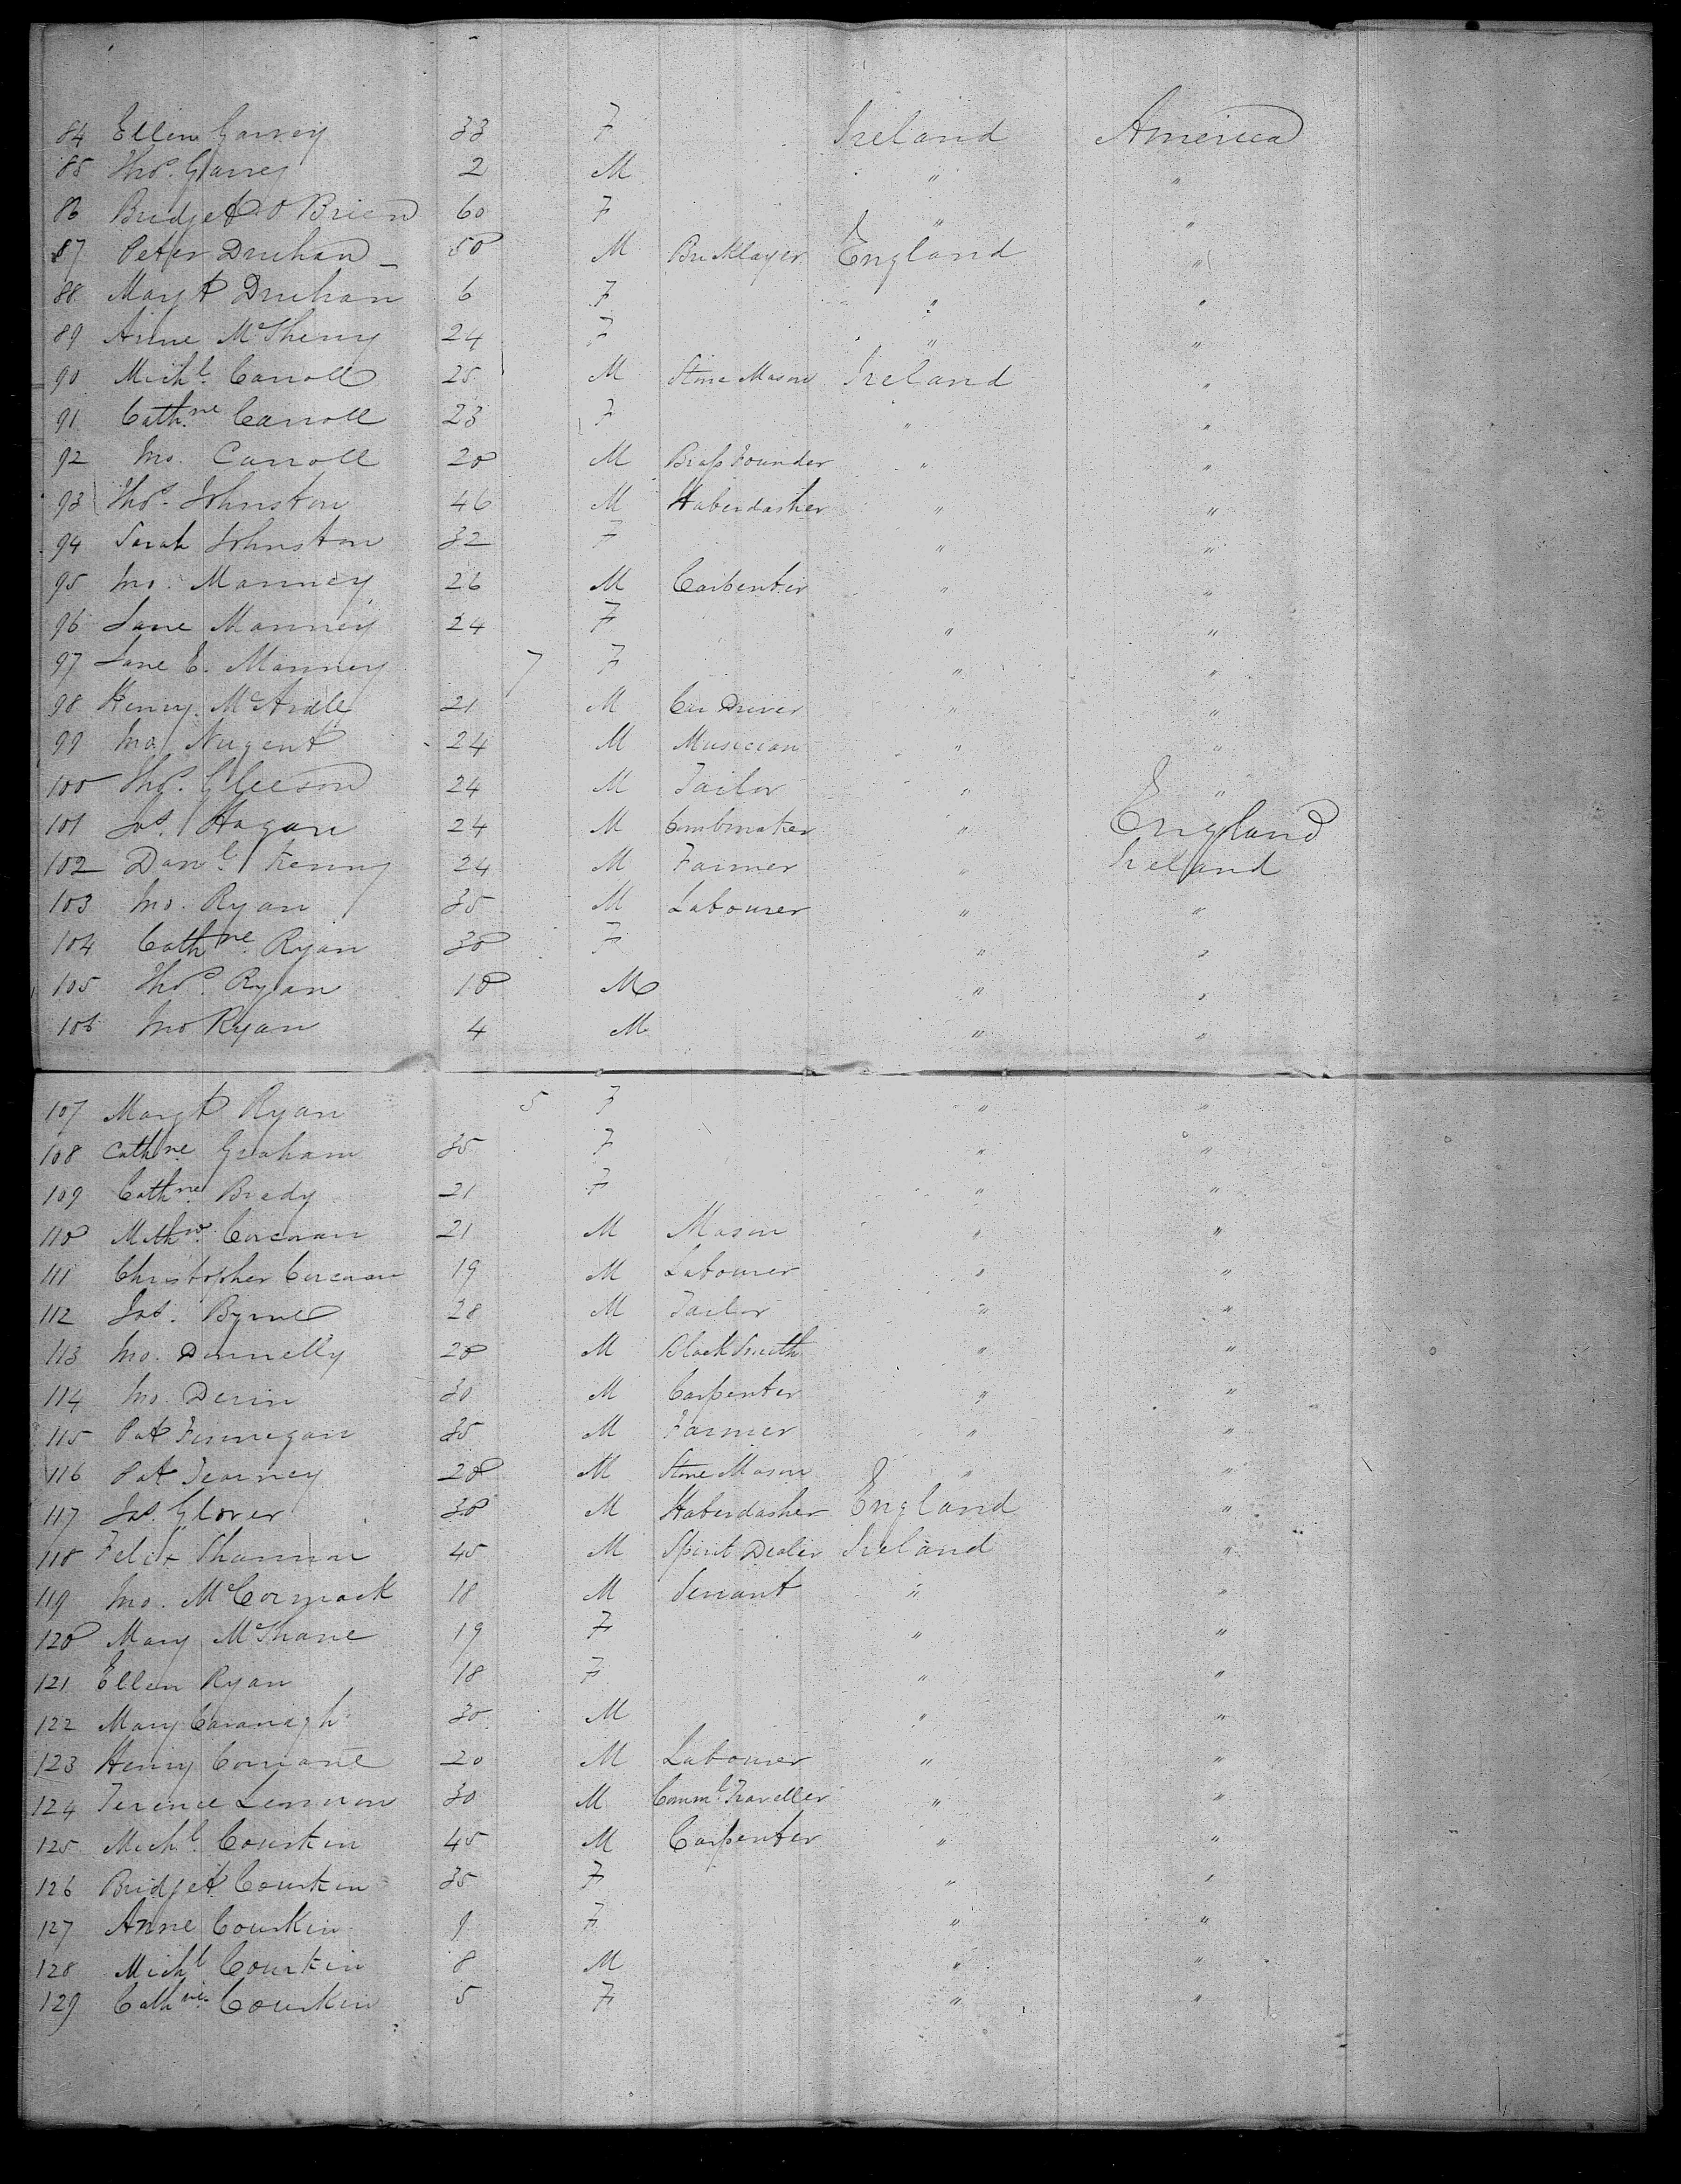 84 Ellen Garvey 33 F Ireland America
85 Thos. Garvey 2 M " "
86 Bridget O Brien 60 F " "
87 Peter Druhan 50 M Bricklayer England "
88 Margt Druhan 6 F " "
89 Anne McSherry 24 F " "
90 Michl. Carroll 25 M Stone Mason Ireland "
91 Cathne Carroll 23 F " "
92 Jno. Carroll 20 M Brass Founder " "
93 Thos. Johnston 46 M Haberdasher " "
94 Sarah Johnston 32 F " "
95 Jno. Manney 26 M Carpenter " "
96 Jane Manney 24 F " "
97 Jane E. Manney 7 F " "
98 Henry McArdle 21 M Car Driver " "
99 Jno. Nugent 24 M Musician " "
100 Thos. Gleeson 24 M Tailor " "
101 Jas. Hagan 24 M Combmaker " England
102 Danl. Kenny 24 M Farmer " Ireland
103 Jno. Ryan 35 M Labourer " "
104 Cathne Ryan 30 F " "
105 Thos. Ryan 10 M " "
106 Jno Ryan 4 M " "
107 Margt Ryan 5 F " "
108 Cathne. Graham 35 F " "
109 Cathne. Brady 21 F " "
110 Mathw. Corcoran 21 M Mason " "
111 Christopher Corcoran 19 M Labourer " "
112 Jas. Byrne 28 M Tailor " "
113 Jno. Donnelly 20 M Black Smith " "
114 Jno. Derin 30 M Carpenter " "
115 Pat Finnegan 35 M Farmer " "
116 Pat Tearney 20 M Stone Mason " "
117 Jas. Glover 30 M Haberdasher England "
118 Felix Shannon 45 M Spirit Dealer Ireland "
119 Jno. McCormack 18 M Servant " "
120 Mary McShane 19 F " "
121 Ellen Ryan 18 F " "
122 Mary Cavanagh 30 M " "
123 Henry 20 M Labourer " "
124 Terence Lennon 30 M Comml. Traveller " "
125 Michl. Courkin 45 M Carpenter " "
126 Bridget Courkin 35 F " "
127 Anne Courkin 9 F " "
128 Michl Courkin 8 M " "
129 Cathne. Courkin 5 F " "